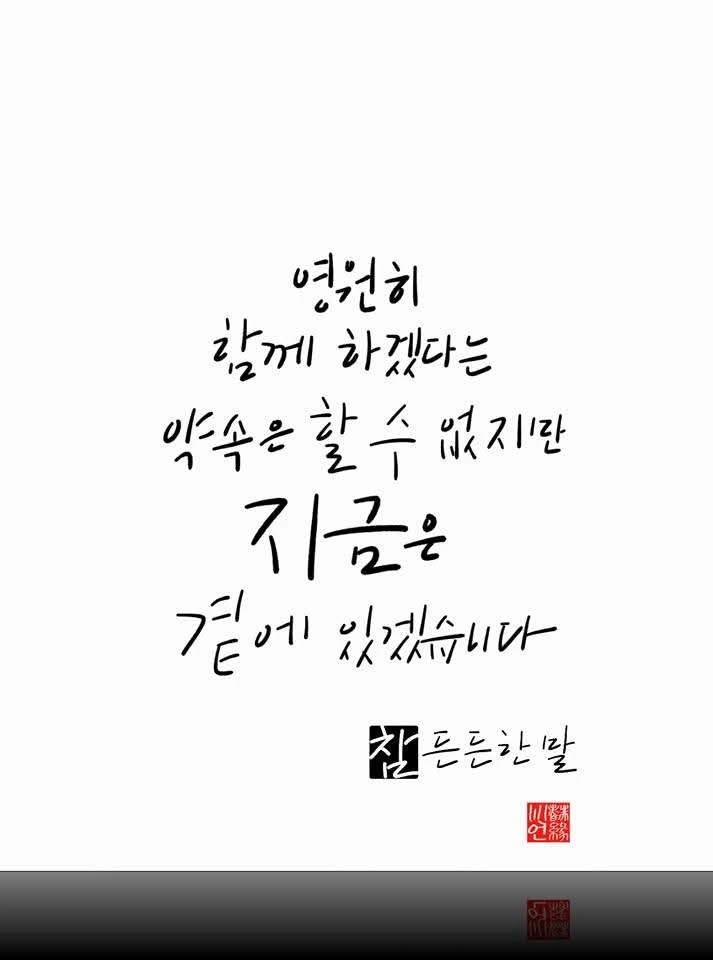 영원히
함께 하겠다는
약속은 할 수 없지만
지금은
곁에 있겠습니다
참 든든한 말